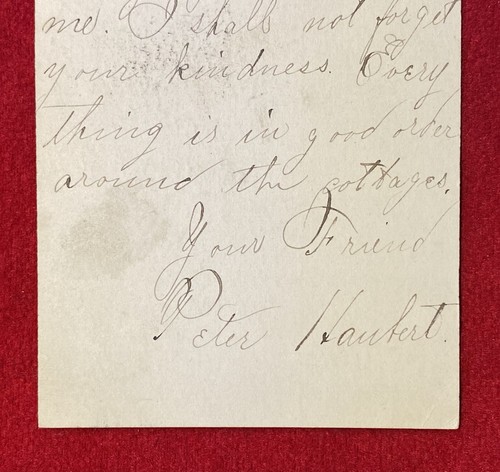 me. I shall not forget
your kindness. Every
thing is in good order
around the cottages.
Your Friend
Peter Haubert.